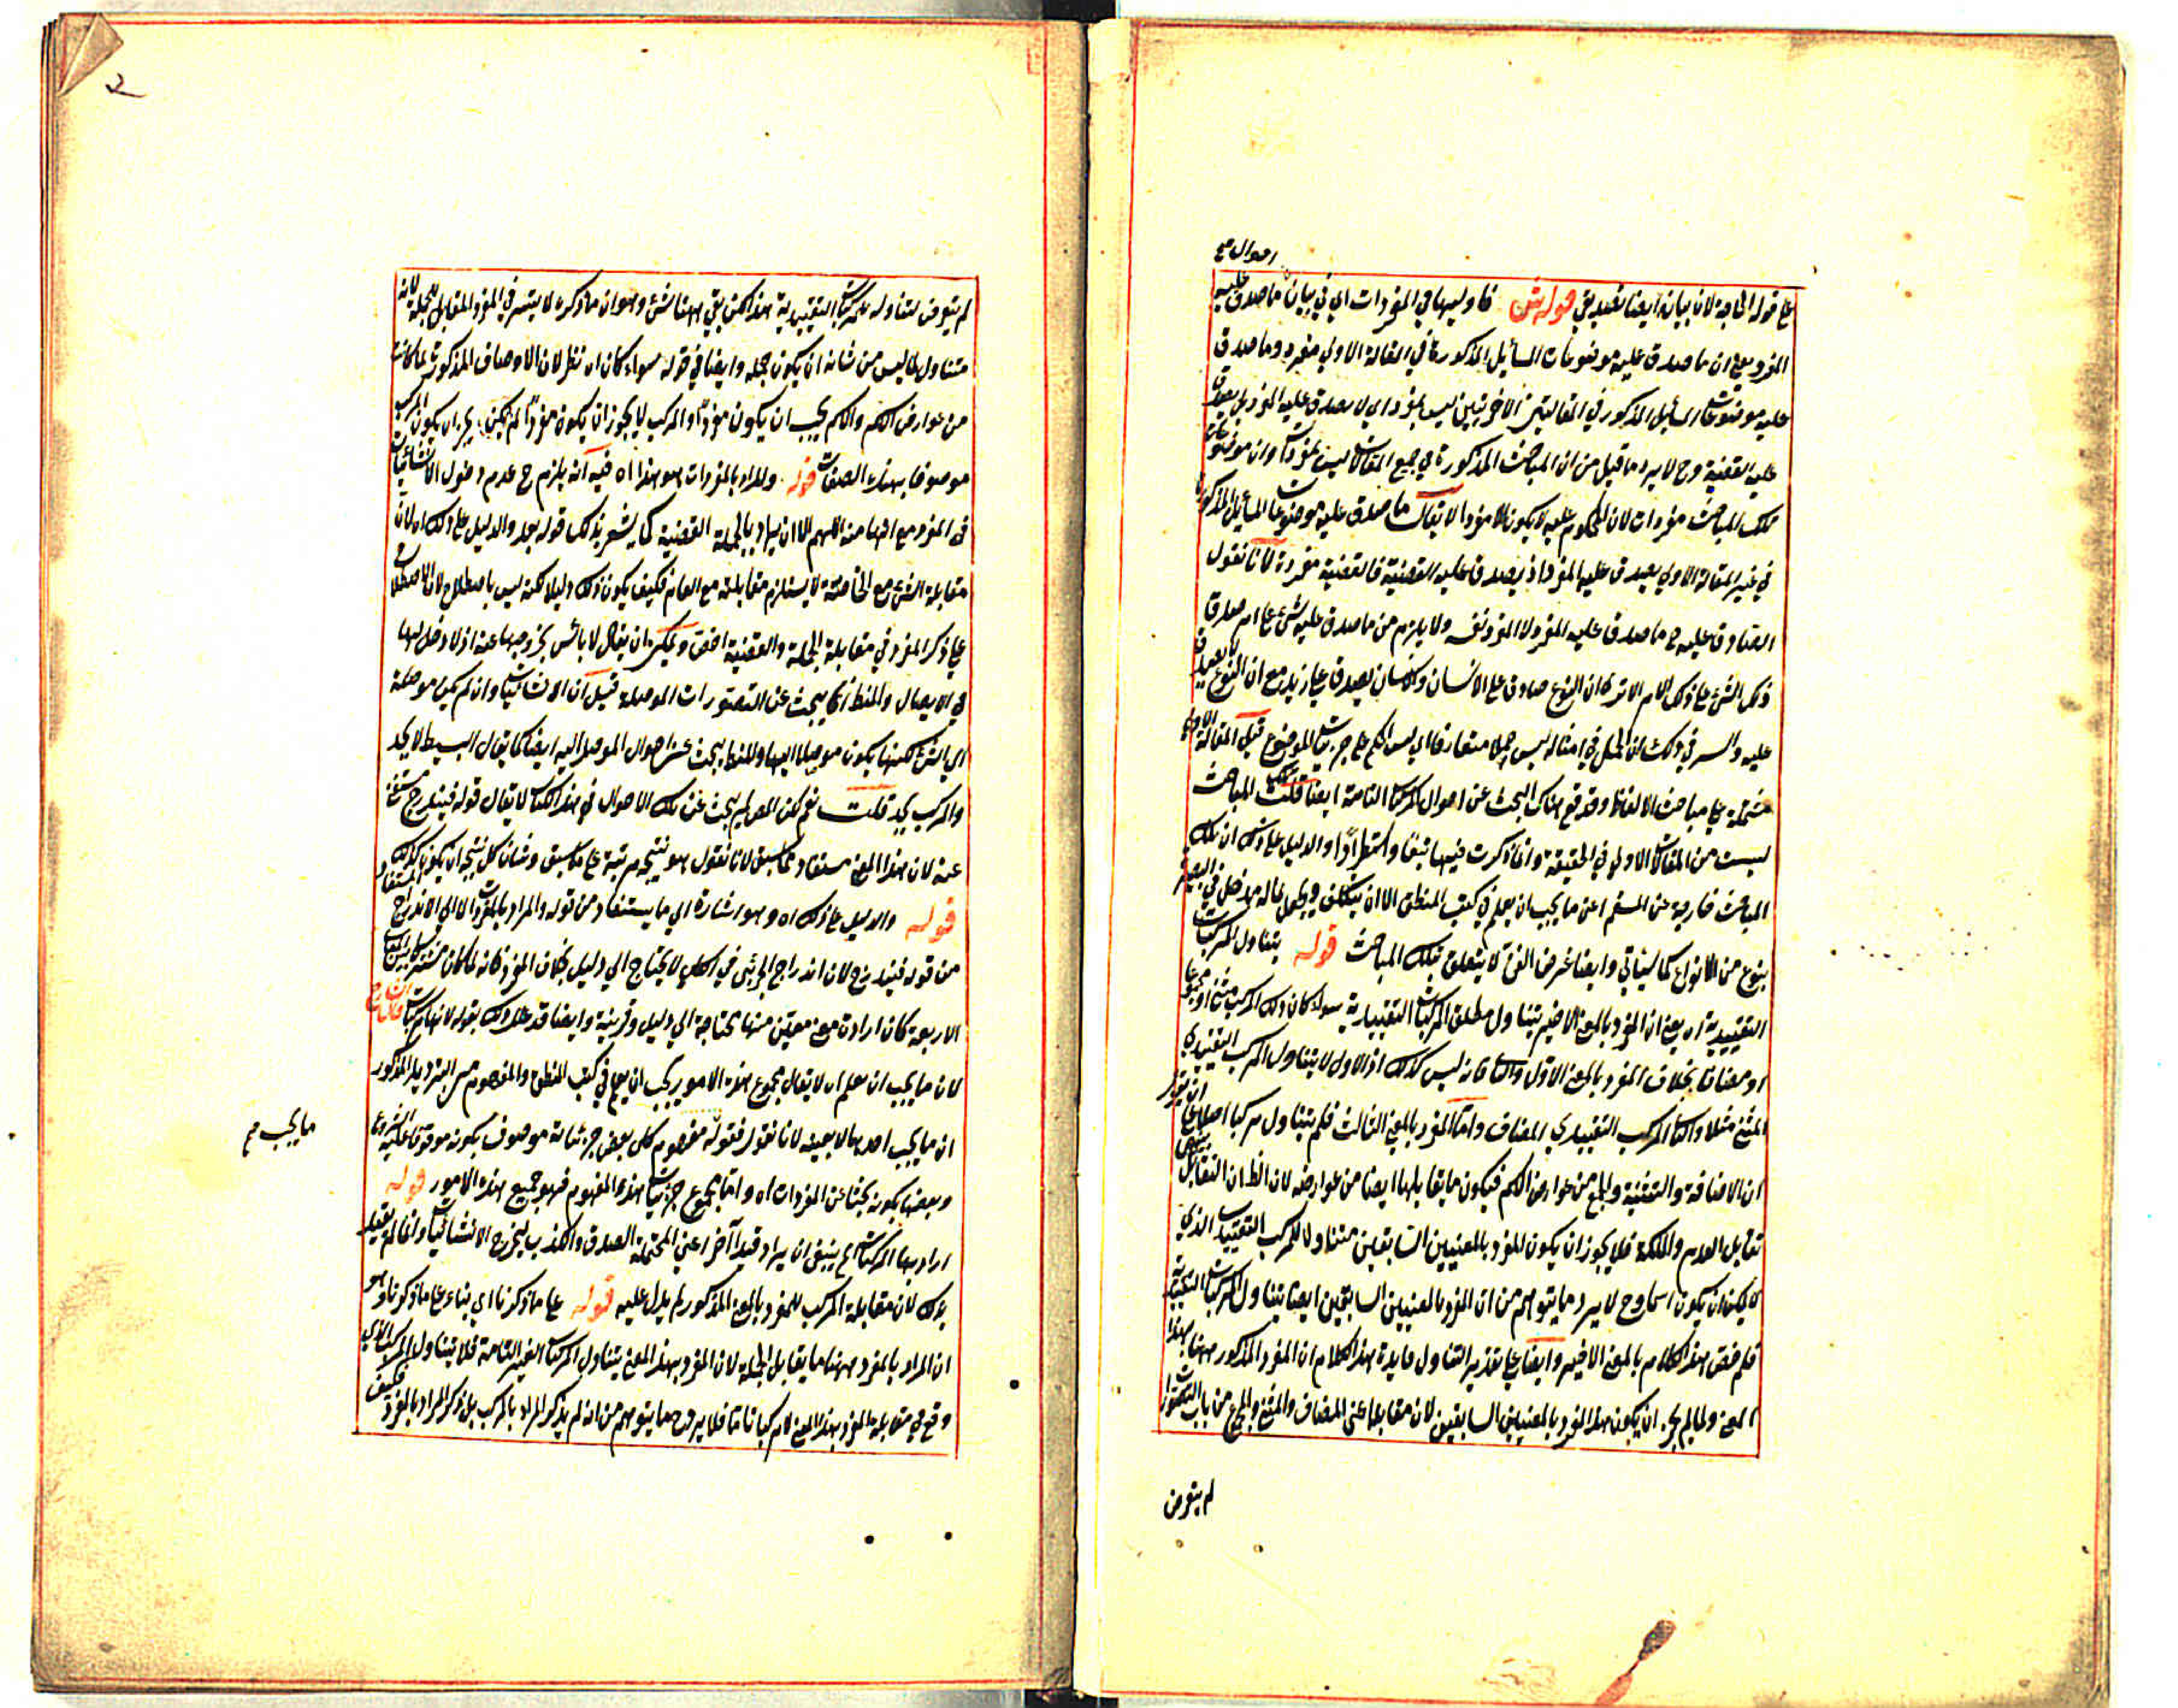 احوال صح
على قوله الحاجة لان بيانه ايضا تصديقي قوله ش فاوليها في المفردات اي في بيان ما صدق عليه
المفرد يعني ان ما صدق عليه موضوعات المسائل المذكورة في المقالة الاولى مفرد وما صدق
عليه موضوعات المسائل المذكور في المقالتين الاخريين ليس بمفرد اي لا يصدق عليه المفرد بل يصدق
عليه القضية وح لا يرد ما قيل من ان المباحث المذكورة في جميع المقالات ليس بمفردات وان موضوعات
تلك المباحث مفردات لان المحكوم عليه لا يكون الا مفردا لا يقال ما صدق عليه موضوعات المسائل المذكورة
في غير المقالة الاولى يصدق عليه المفرد اذ يصدق عليه القضية فالقضية مفردة لانا نقول
الصادق عليه ما صدق عليه المفرد لا المفرد نفسه ولا يلزم من ما صدق عليه شئ على امر صدق
ذلك الشئ على ذلك الامر الا ترى ان النوع صادق على الانسان والانسان يصدق على زيد مع ان النوع لا يصدق
عليه والسر في ذلك ان الحمل في امثاله ليس حملا متعارفا اي ليس الحكم على جزئيات الموضوع قيل المقالة الاولى
مشتملة على مباحث الالفاظ وقد وقع هناك البحث عن احوال المركبات التامة ايضا قلت تلك المباحث
ليست من المقالات الاولى في الحقيقة وانما ذكرت فيها تبعا واستطرادا والدليل على ذلك ان تلك
المباحث خارجة عن المقسم اعني ما يجب ان يعلم في كتب المنطق الا ان يتكلف ويجعل لماله مدخل في البصيرة
بنوع من الانواع كما سيأتي وايضا غرض الفن لا يتعلق بتلك المباحث قوله يتناول المركبات
التقييدية اه يعني ان المفرد بالمعنى الاخير يتناول مطلق المركبات التقييدية سواء كان ذلك المركب مثنى او مجموعا
او مضافا بخلاف المفرد بالمعنى الاول والثاني فانه ليس كذلك اذ الاول لا يتناول المركب التقييدي
المثنى مثلا والثاني المركب التقييدي المضاف واما المفرد بالمعنى الثالث فلم يتناول مركبا اصلا على
ان الاضافة والتثنية والجمع من عوارض الكلم فيكون ما يقابلها ايضا من عوارضه لان الظ ان التقابل بينهما
تقابل العدم والملكة فلا يجوز ان يكون المفرد بالمعنيين السابقين متناولا للمركب التقييدي الذي
لا يمكن ان يكون اسما وح لا يرد ما يتوهم من ان المفرد بالمعنيين السابقين ايضا يتناول المركبات التقييدية
فلم خص هذا الكلام بالمعنى الاخير وايضا على تقدير التناول فايدة هذا الكلام ان المفرد المذكور ههنا بهذا
المعنى ولما لم يجز ان يكون هذا المفرد بالمعنيين السابقين لان مقابلها اعني المضاف والمثنى والجمع من باب التصورات
لم يتعرض
لم يتعرض لتناوله للمركبات التقييدية هذا لكن بقي ههنا شئ وهو ان ما ذكره لا يتسر في المفرد المقابل للجملة لانه
متناول لما ليس من شانه ان يكون جملة وايضا في قوله سواء كان اه نظر لان الاوصاف المذكورة لما كانت
من عوارض الكلم والكلم يجب ان يكون مفردا والمركب لا يجوز ان يكون مفردا لم يمكن ان يكون المركب
موصوفا بهذه الصفات قوله والمراد بالمفردات هو هذا اه فيه انه يلزم ح عدم دخول الانشائيات
في المفرد مع انها منه اللهم الا ان يراد بالجملة القضية كما يشعر بذلك قوله بعد والدليل على ذلك اه لان
مقابلة الشئ مع الخاصة لا يستلزم مقابلته مع العام فكيف يكون ذلك دليلا لكنه ليس باصطلاح لان الاصطلاح
على ذكر المفرد في مقابلة الجملة والقضية اخص ويمكن ان يقال لا بأس بخروجها عنه اذ لا دخل لها
في الايصال والمنطق انما يبحث عن التصورات الموصلة قيل ان الانشائيات وان لم يكن موصلة
الى الشئ لكنها يكون موصلا اليها والمنطق يبحث عن احوال الموصل اليه ايضا كما يقال البسيط لا يحد
والمركب يحد قلت نعم لكن المصنف لم يبحث عن تلك الاحوال في هذا الكتاب لا يقال قوله فيندرج مستغنى
عنه لان هذا المعنى مستفاد مما سبق لانا نقول هو نتيجة مرتبة على ما سبق وشان كل نتيجة ان يكون كذلك
قوله والدليل على ذلك اه وهو اشارة الى ما يستفاد من قوله والمراد بالمفردات الا الى الاندراج المستفاد
من قوله فيندرج لان اندراج الجزئي في الكلي لا يحتاج الى دليل بخلاف المفرد فانه لما كان مشتركا بين المعاني
الاربعة كان ارادة معنى معين منها محتاجة الى دليل وقرينة وايضا قد علل ذلك بقوله لانها مركبات قال الشارح
لان ما يجب ان يعلم اه لا يقال مجموع هذه الامور يجب ان يعلم في كتب المنطق والمفهوم من الترديد المذكور
ان ما يجب احدها لا بعينه لانا نقول فقوله مفهوم كلي بعض جزئياته موصوف بكونه موقوفا عليه الشروع
وبعضها بكونه بحثا عن المفردات اه واما مجموع جزئيات هذا المفهوم فهو جميع هذه الامور قوله
اراد بها المركبات الخ ينبغي ان يراد قيدا آخر اعني المحتملة الصدق والكذب ليخرج الانشائيات وانما لم يقيد
بذلك لان مقابلة المركب للمفرد بالمعنى المذكور لم يدل عليه قوله على ما ذكرنا اي بناء على ما ذكرنا وهو
ان المراد بالمفرد ههنا ما يقابل الجملة لان المفرد بهذا المعنى يتناول المركبات الغير التامة فلا يتناول المركب الذي
وقع في مقابلة المفرد بهذا المعنى الا مركبا تاما فلا يرد ح ما يتوهم من انه لم يذكر المراد بالمركب بل ذكر المراد بالمفرد فكيف
ما يجب صح